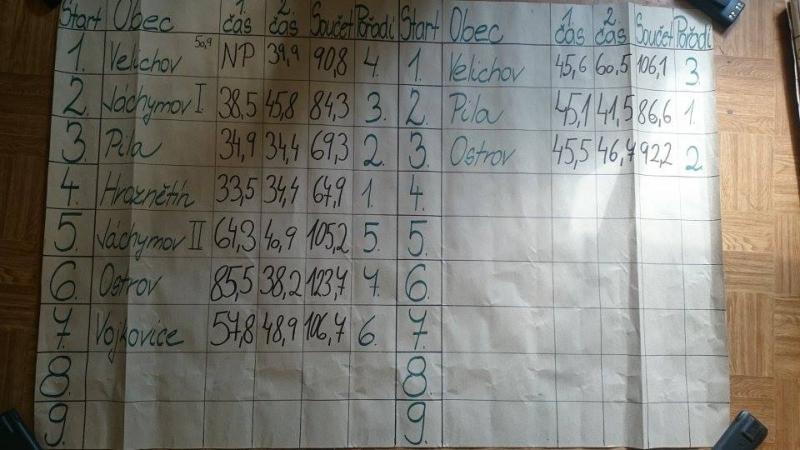 Start Obec 1. čas 2. čas Součet Pořadí Start Obec 1. čas 2. čas Součet Pořadí
1. Velichov 50,9 NP 39,9 90,8 4. 1. Velichov 45,6 60,5 106,1 3
2. Jáchymov I 38,5 45,8 84,3 3. 2. Pila 45,1 41,5 86,6 1.
3. Pila 34,9 34,4 69,3 2. 3. Ostrov 45,5 46,7 92,2 2
4. Hroznětín 33,5 34,4 67,9 1. 4.
5. Jáchymov II 64,3 40,9 105,2 5. 5.
6. Ostrov 85,5 38,2 123,7 7. 6.
7. Vojkovice 57,8 48,9 106,7 6. 7.
8. 8.
9. 9.